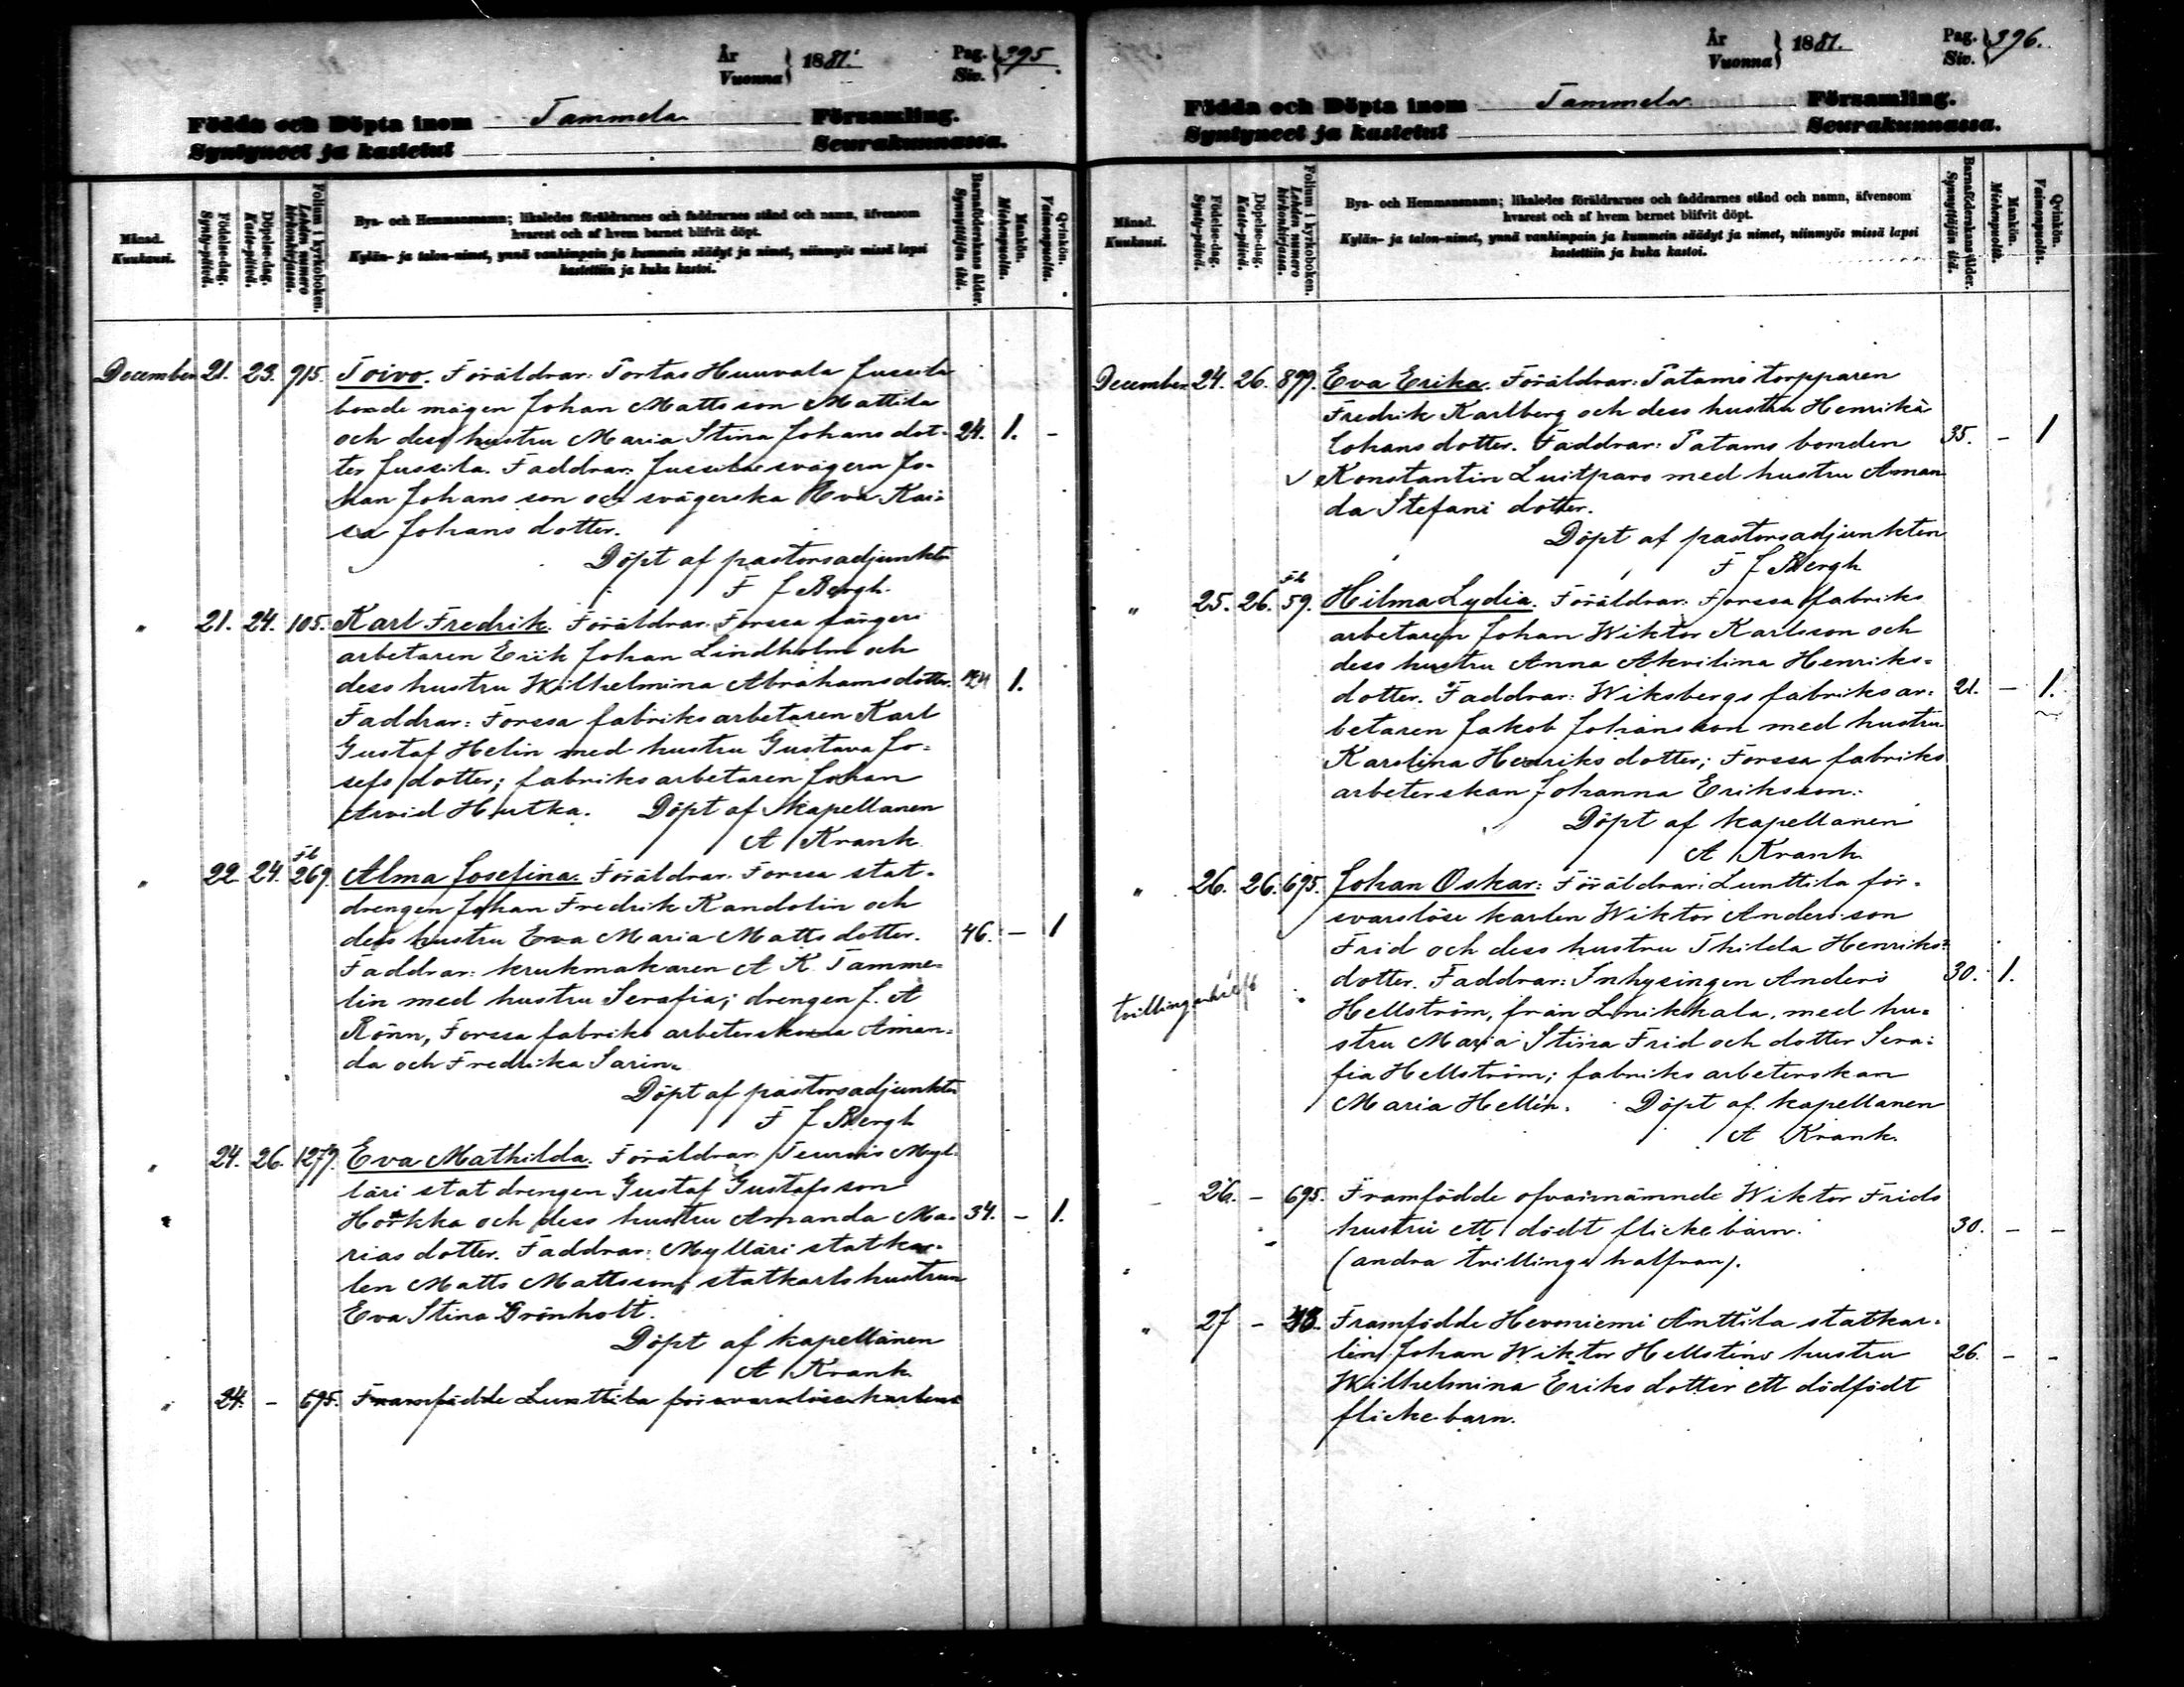 År
Vuonna } 1881. Pag.
Siv. } 395
Födda och Döpta inom Tammela Församling.
Syntyneet ja kastetut Seurakunnassa.
Månad.
Kuukausi.
Födelse-dag.
Synty-päivä.
Döpelse-dag.
Kaste-päivä.
Folium i kyrkoboken.
Lehden numero
kirkonkirjassa.
Bya- och Hemmansnamn; likaledes föräldrarnes och faddrarnes stånd och namn, äfvensom
hvarest och af hvem barnet blifvit döpt.
Kylän- ja talon-nimet, ynnä vanhimpain ja kummein säädyt ja nimet, niinmyös missä lapsi
kastettiin ja kuka kastoi.
Barnaföderskans ålder.
Synnyttäjän ikä.
Mankön.
Miehenpuolia.
Qvinkön.
Vaimonpuolia.
December 21. 23. 915. Toivo. Föräldrar: Portas Huuvala Jussila
bonde mågen Johan Matts son Mattila
och dess hustru Maria Stina Johans dot- 24. 1. -
ter Jussila. Faddrar: Jussila svågern Jo-
han Johans son och svägerska Eva Kai-
sa Johans dotter.
Döpt af pastorsadjunkten
F J Bergh.
" 21. 24. 105. Karl Fredrik. Föräldrar. Forssa färgeri
arbetaren Erik Johan Lindholm och
dess hustru Wilhelmina Abrahams dotter. 1.
Faddrar: Forssa fabriks arbetaren Karl
Gustaf Helin med hustru Gustava Jo-
sefs dotter; fabriks arbetaren Johan
Arvid Hutka. Döpt af kapellanen
A Krank
" 22 24. Fb 269. Alma Josefina. Föräldrar. Forssa stat-
drengen Johan Fredrik Kandolin och
dess hustru Eva Maria Matts dotter. 46. - 1
Faddrar: krukmakaren A K. Tamme-
lin med hustru Serafia; drengen J. A
Rönn, Forssa fabriks arbeterskorna Aman-
da och Fredrika Sarin.
Döpt af pastorsadjunkten
F J Bergh
" 24. 26. 1277. Eva Mathilda. Föräldrar. Teuro Myl-
läri stat drengen Gustaf Gustafs son
Horkka och dess hustru Amanda Ma- 34. - 1.
rias dotter. Faddrar: Mylläri statkar-
len Matts Mattsson, statkarls hustrun
Eva Stina Grönholt.
Döpt af kapellanen
A Krank
" 24. - 695. Framfödde Lunttila försvarslöse karlens
År
Vuonna } 1881. Pag.
Siv. } 396.
Födda och Döpta inom Tammela Församling.
Syntyneet ja kastetut Seurakunnassa.
Månad.
Kuukausi.
Födelse-dag.
Synty-päivä.
Döpelse-dag.
Kaste-päivä.
Folium i kyrkoboken.
Lehden numero
kirkonkirjassa.
Bya- och Hemmansnamn; likaledes föräldrarnes och faddrarnes stånd och namn, äfvensom
hvarest och af hvem barnet blifvit döpt.
Kylän- ja talon-nimet, ynnä vanhimpain ja kummein säädyt ja nimet, niinmyös missä lapsi
kastettiin ja kuka kastoi.
Barnaföderskans ålder.
Synnyttäjän ikä.
Mankön.
Miehenpuolia.
Qvinkön.
Vaimonpuolia.
December 24. 26. 899. Eva Erika. Föräldrar: Patamo torpparen
Fredrik Karlberg och dess hustru Henrika
Johans dotter. Faddrar: Patamo bonden 35. - 1
Konstantin Luitpars med hustru Aman
da Stefans dotter.
Döpt af pastorsadjunkten
F J Bergh
" 25. 26. Fb 59. Hilma Lydia. Föräldrar: Forssa fabriks
arbetaren Johan Wiktor Karlsson och
dess hustru Anna Akvilina Henriks-
dotter. Faddrar: Wiksbergs fabriks ar- 21. - 1.
betaren Jakob Johansson med hustru
Karolina Henriks dotter; Forssa fabriks
arbeterskan Johanna Eriksson.
Döpt af kapellanen
A Krank
" 26. 26. 695. Johan Oskar: Föräldrar: Lunttila för-
svarslöse karlen Wiktor Anders son
Frid och dess hustru Thilda Henriks-
dotter. Faddrar: Inhysingen Anders 30. 1.
tvillingarhälft
Hellström, från Linikkala, med hu-
stru Maria Stina Frid och dotter Sera-
fia Hellström; fabriks arbeterskan
Maria Hellén. Döpt af kapellanen
A Krank.
26. - 695. Framfödde ofvannämnde Wiktor Frids
hustru ett dödt flicke barn. 30. - -
(andra tvillings halfvan).
" 27 - Framfödde Hevoniemi Anttila statkar-
len Johan Wiktor Hellstens hustru 26. - -
Wilhelmina Eriks dotter ett dödfödt
flicke barn.